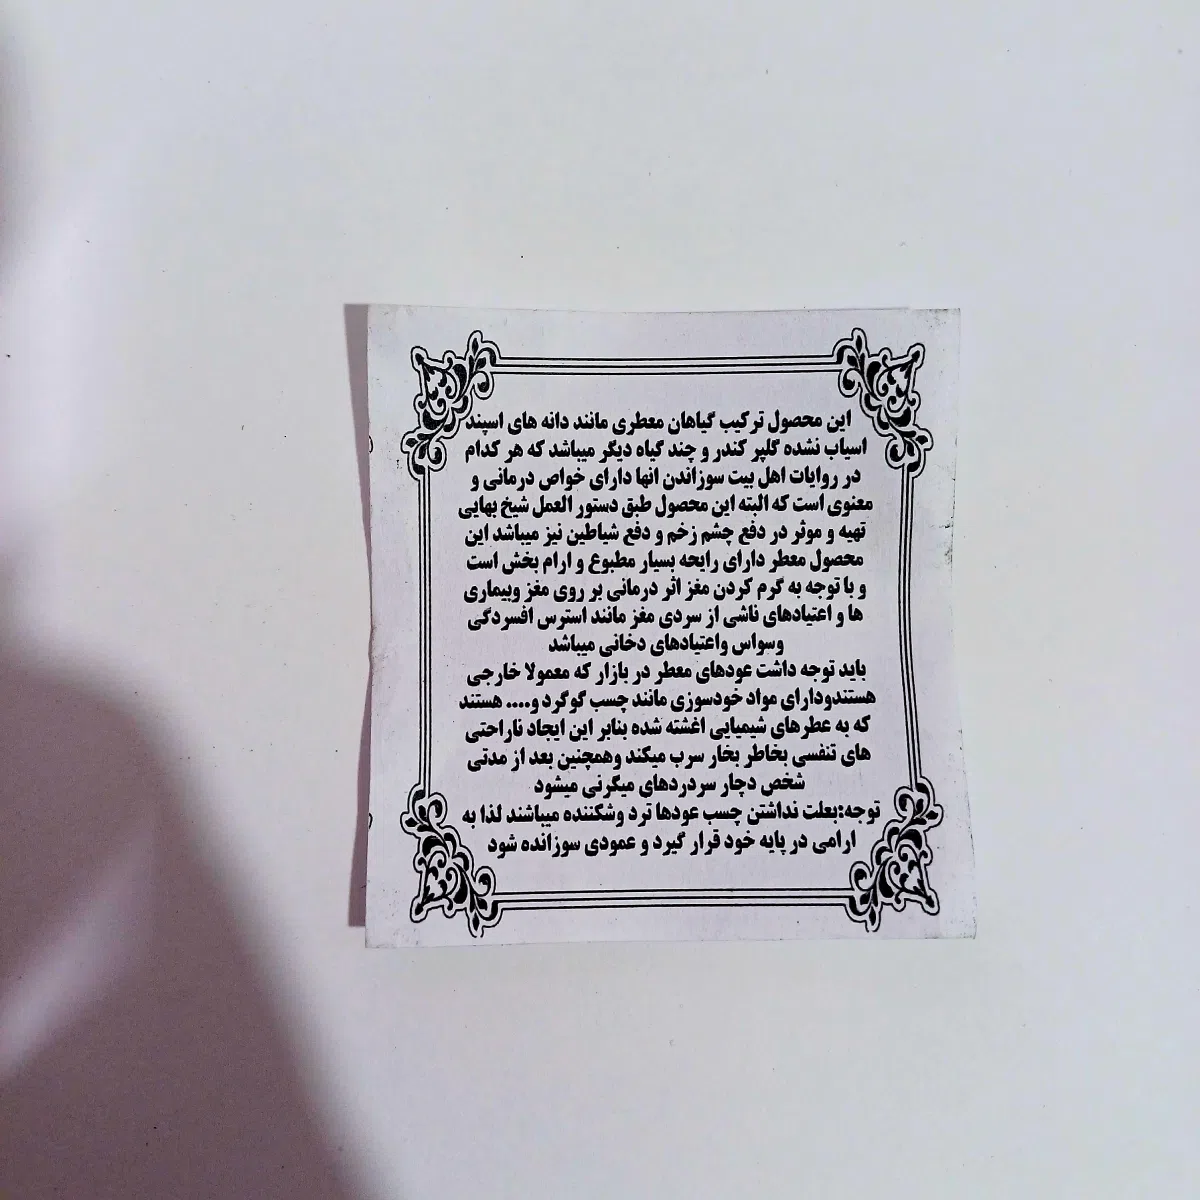 این محصول ترکیب گیاهان معطری مانند دانه های اسپند
اسیاب نشده گلپر کندر و چند گیاه دیگر میباشد که هر کدام
در روایات اهل بیت سوزاندن انها دارای خواص درمانی و
معنوی است که البته این محصول طبق دستور العمل شیخ بهایی
تهیه و موثر در دفع چشم زخم و دفع شیاطین نیز میباشد این
محصول معطر دارای رایحه بسیار مطبوع و ارام بخش است
و با توجه به گرم کردن مغز اثر درمانی بر روی مغز وبیماری
ها و اعتیادهای ناشی از سردی مغز مانند استرس افسردگی
وسواس واعتیادهای دخانی میباشد
باید توجه داشت عودهای معطر در بازار که معمولا خارجی
هستندودارای مواد خودسوزی مانند چسب گوگرد و.... هستند
که به عطرهای شیمیایی اغشته شده بنابر این ایجاد ناراحتی
های تنفسی بخاطر بخار سرب میکند وهمچنین بعد از مدتی
شخص دچار سردردهای میگرنی میشود
توجه:بعلت نداشتن چسب عودها ترد وشکننده میباشند لذا به
ارامی در پایه خود قرار گیرد و عمودی سوزانده شود